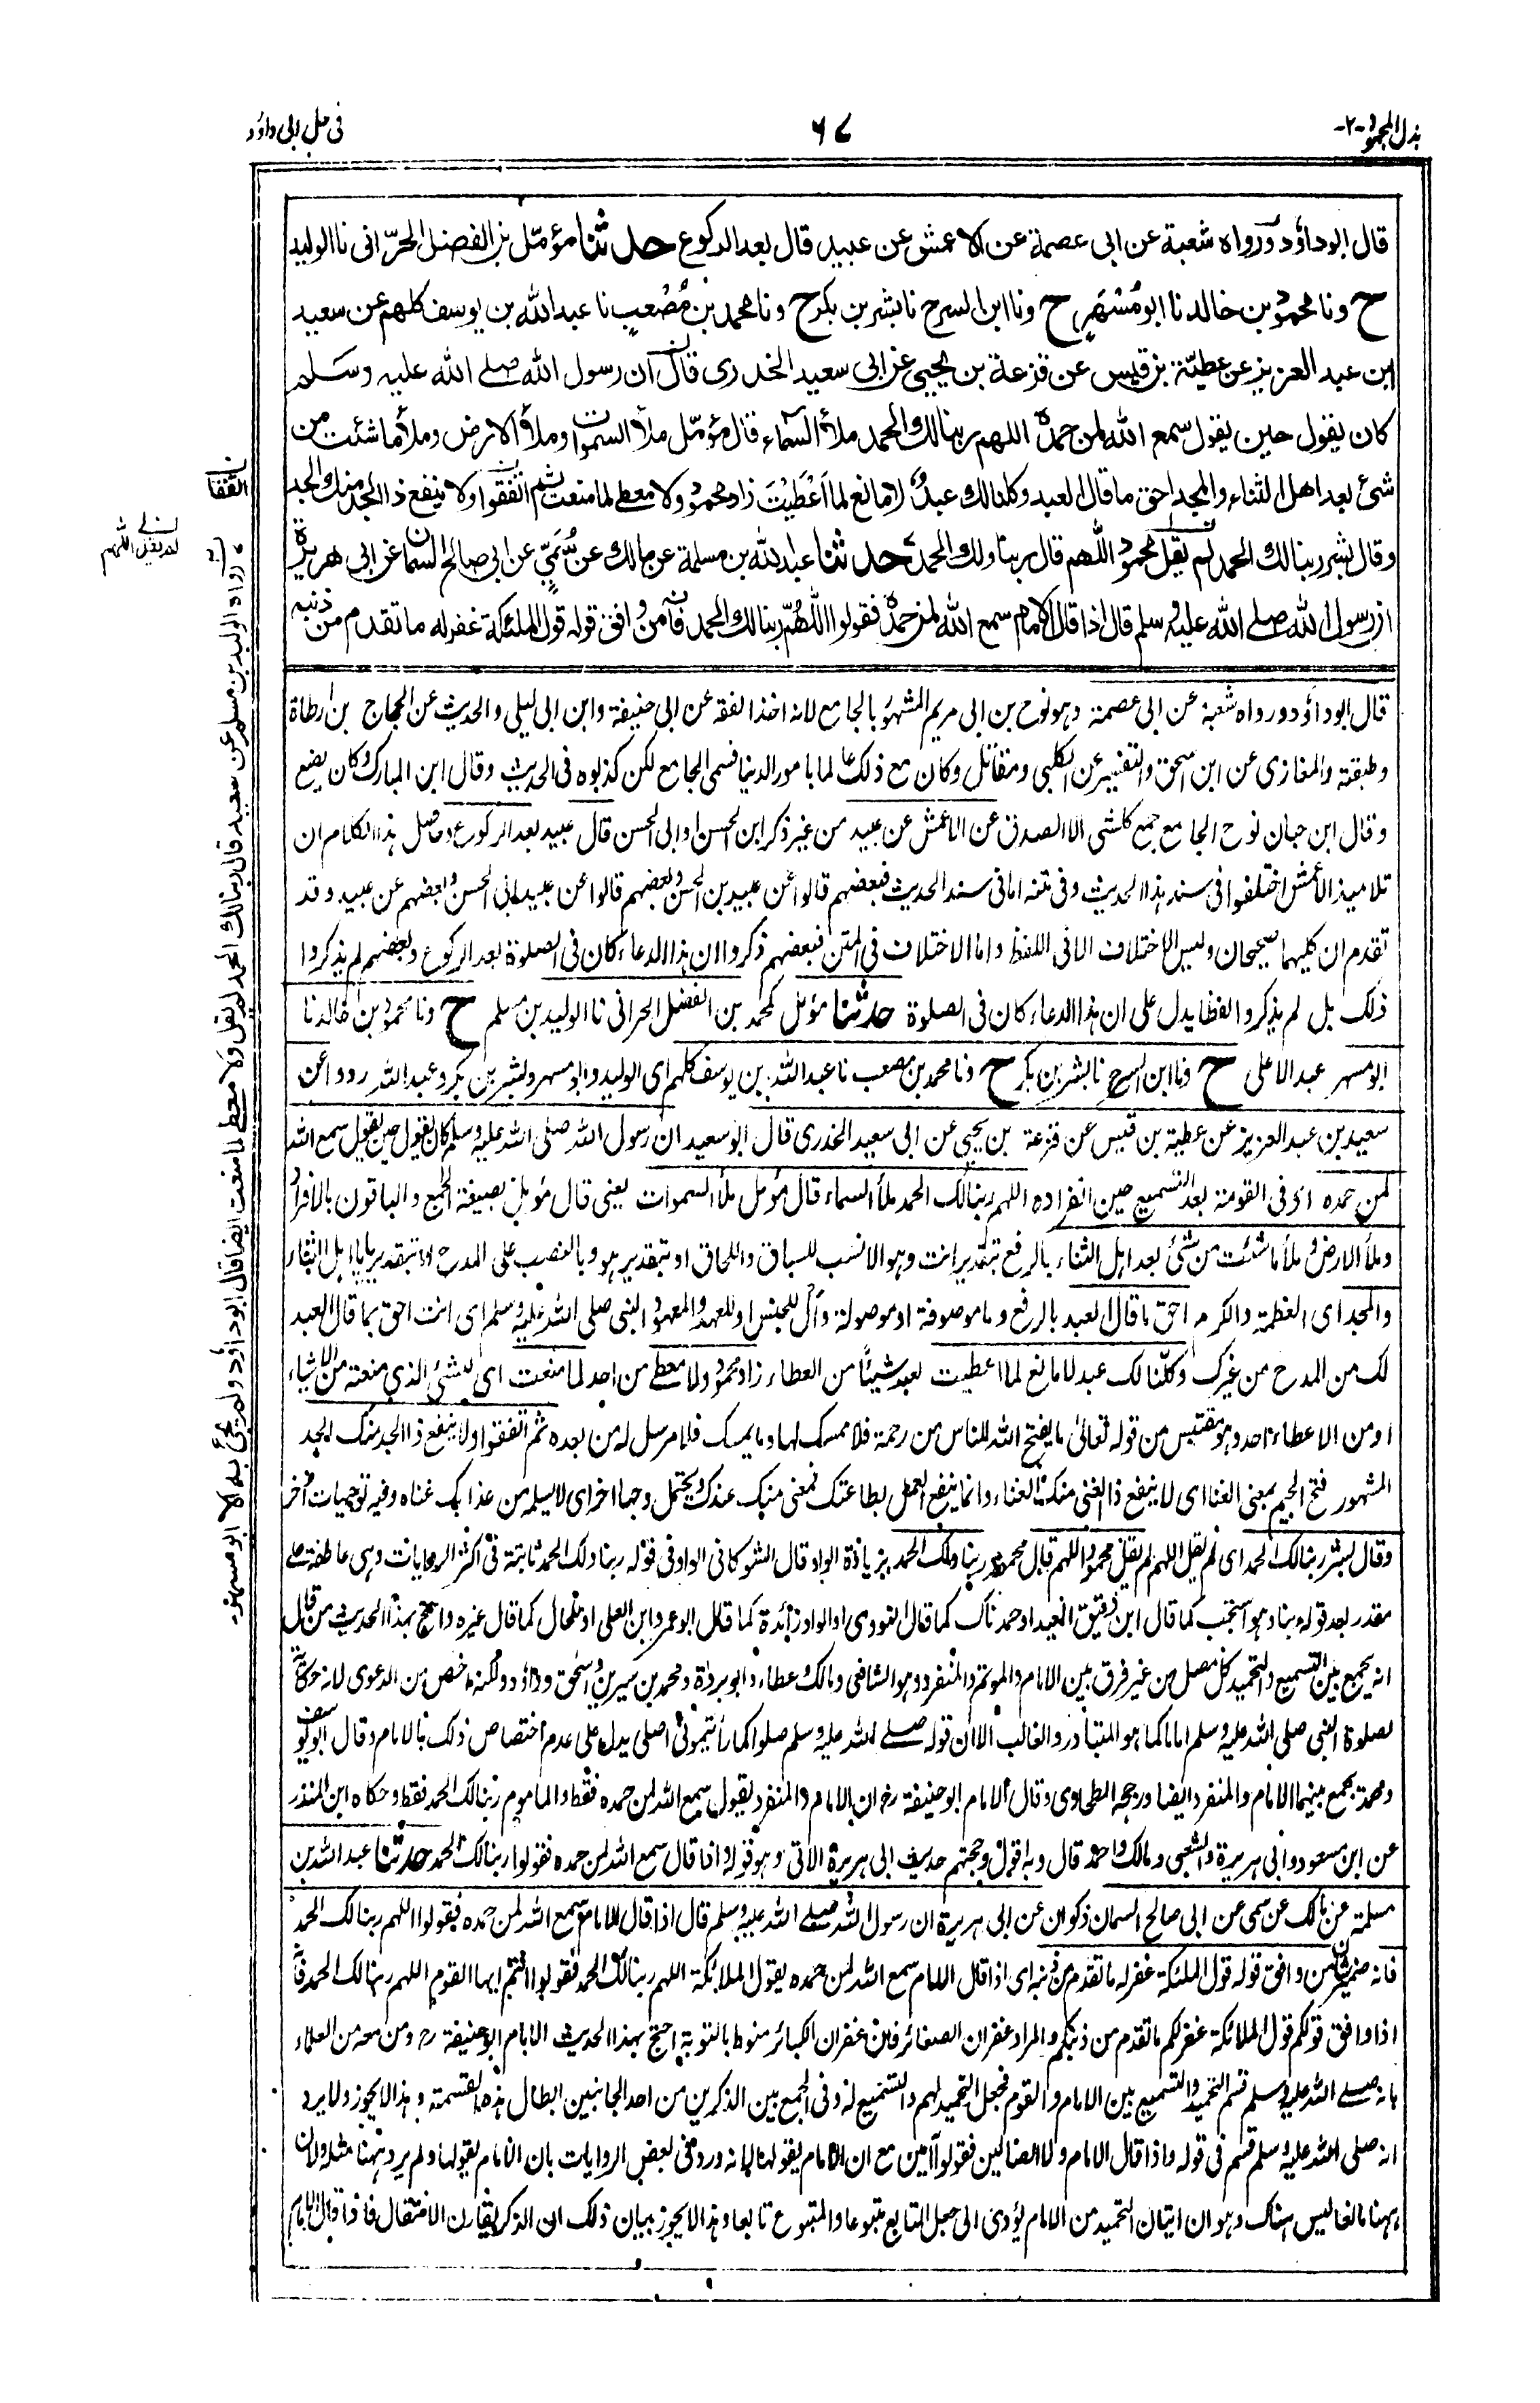 بذل المجهود -٢-
٦٧
في حل ابی داؤد
قال ابوداؤد ورواه شعبة عن ابی عصمة عن الاعمش عن عبید قال بعد الرکوع حدثنا مؤمّل بن الفضل الحرّانی نا الولید
ح ونا محمود بن خالد نا ابو مُسْهَرٍ ح ونا ابن السرح نا بشر بن بکر ح ونا محمد بن مُصْعَبٍ نا عبد الله بن یوسف کلهم عن سعید
ابن عبد العزیز عن عطیّة بن قیس عن قزعة بن یحییٰ عن ابی سعید الخدری قال ان رسول الله صلے الله علیه وسلم
کان یقول حین یقول سمع الله لمن حمدہ اللهم ربنا لك الحمد ملأ السماء قال مؤمّل ملأ السموات وملأ الارض وملأ ما شئت من
شئ بعد اهل الثناء والمجد احق ما قال العبد وکلنا لك عبدٌ لا مانع لما اَعْطَیْتَ زاد محمود ولا معطی لما منعت ثم اتفقوا ولا ینفع ذا الجد منك الجد
وقال بشر ربنا لك الحمد لم یقل محمود اللهم قال ربنا ولك الحمد حدثنا عبد الله بن مسلمة عن مالك عن سُمَیٍّ عن ابی صالح السمان عن ابی هریرة
ان رسول الله صلے الله علیه وسلم قال اذا قال الامام سمع الله لمن حمدہ فقولوا اللهُمّ ربنا لك الحمد فانه من وافق قوله قول الملئکة غفر له ما تقدم من ذنبه
قال ابو داؤد ورواه شعبة عن ابی عصمة وہو نوح بن ابی مریم المشہور بالجامع لانہ اخذ الفقہ عن ابی حنیفة وابن ابی لیلی والحدیث عن الحجاج بن ارطاة
وطبقتہ والمغازی عن ابن اسحق والتفسیر عن الکلبی ومقاتل وکان مع ذلک عالما بامور الدنیا فسمی الجامع لکن کذبوہ فی الحدیث وقال ابن المبارک وکان یضع
وقال ابن حبان نوح الجامع جمع کل شئ الا الصدق عن الاعمش عن عبید من غیر ذکر ابن الحسن او ابی الحسن قال عبید بعد الرکوع وحاصل ہذا الکلام ان
تلامیذ الاعمش اختلفوا فی سند ہذا الحدیث وفی متنہ اما فی سند الحدیث فبعضہم قالوا عن عبید بن الحسن وبعضہم قالوا عن عبید ابی الحسن وبعضہم عن عبید وقد
تقدم ان کلیہما صحیحان ولیس الاختلاف الا فی اللفظ واما الاختلاف فی المتن فبعضہم ذکروا ان ہذا الدعاء کان فی الصلوة بعد الرکوع وبعضہم لم یذکروا
ذلک بل لم یذکروا لفظا یدل علی ان ہذا الدعاء کان فی الصلوة حدثنا مؤمل کمحمد بن الفضل الحرانی نا الولید بن مسلم ح ونا محمود بن خالد نا
ابو مسہر عبد الاعلی ح ونا ابن السرح نا بشر بن بکر ح ونا محمد بن مصعب نا عبد اللہ بن یوسف کلہم ای الولید وابو مسہر وبشر بن بکر وعبد اللہ رووا عن
سعید بن عبد العزیز عن عطیة بن قیس عن قزعة بن یحیی عن ابی سعید الخدری قال ابو سعید ان رسول اللہ صلی اللہ علیہ وسلم کان یقول حین یقول سمع اللہ
لمن حمدہ ای فی القومة بعد التسمیع حین انفرادہ اللہم ربنا لک الحمد ملأ السماء قال مؤمل ملأ السموات یعنی قال مؤمل بصیغة الجمع والباقون بالافراد
وملأ الارض وملأ ما شئت من شئ بعد اہل الثناء بالرفع بتقدیر انت وہو الانسب للسباق واللحاق او بتقدیر ہو وبالنصب علی المدح او بتقدیر یا اہل الثناء
والمجد ای العظمة والکرم احق ما قال العبد بالرفع وما موصوفة او موصولة وأل للجنس او للعہد والمعہود النبی صلی اللہ علیہ وسلم ای انت احق بما قال العبد
لک من المدح من غیرک وکلّنا لک عبد لا مانع لما اعطیت لعبد شیئًا من العطاء زاد محمود ولا معطی من احد لما منعت ای للشئ الذی منعتہ من الاشیاء
او من الاعطاء احد وہو مقتبس من قولہ تعالی ما یفتح اللہ للناس من رحمة فلا ممسک لہا وما یمسک فلا مرسل لہ من بعدہ ثم اتفقوا ولا ینفع ذا الجد منک الجد
المشہور فتح الجیم بمعنی الغنا ای لا ینفع ذا الغنی منک الغناء وانما ینفع العمل بطاعتک فمعنی منک عندک ویحتمل وجہا اخر ای لا یسلمہ من عذابک غناہ وفیہ توجیہات أخر
وقال بشر ربنا لک الحمد ای لم یقل اللہم لم یقل محمود اللہم قال محمود ربنا ولک الحمد بزیادة الواو قال الشوکانی الواو فی قولہ ربنا ولک الحمد ثابتة فی اکثر الروایات وہی عاطفة علی
مقدر بعد قولہ ربنا وہو استجب کما قال ابن دقیق العید او حمدناک کما قال النووی او الواو زائدة کما قال ابو عمرو ابن العلی او للحال کما قال غیرہ واحتج بہذا الحدیث من قال
انہ یجمع بین التسمیع والتحمید کل مصل من غیر فرق بین الامام والموتم والمنفرد وہو الشافعی ومالک وعطاء وابو بردة ومحمد بن سیرین واسحق وداؤد ولکنہ اخص من الدعوی لانہ حکایة
لصلوة النبی صلی اللہ علیہ وسلم اماما کما ہو المتبادر والغالب الا ان قولہ صلے اللہ علیہ وسلم صلوا کما رأیتمونی اصلی یدل علی عدم اختصاص ذلک بالامام وقال ابو یوسف
ومحمد یجمع بینہما الامام والمنفرد ایضا ورجحہ الطحاوی وقال الامام ابو حنیفة رح ان الامام والمنفرد یقول سمع اللہ لمن حمدہ فقط والماموم ربنا لک الحمد فقط وحکاہ ابن المنذر
عن ابن مسعود وابی ہریرة والشعبی ومالک واحمد قال وبہ اقول وحجتہم حدیث ابی ہریرة الآتی وہو قولہ واذا قال سمع اللہ لمن حمدہ فقولوا ربنا لک الحمد حدثنا عبد اللہ بن
مسلمة عن مالک عن سمی عن ابی صالح السمان ذکوان عن ابی ہریرة ان رسول اللہ صلے اللہ علیہ وسلم قال اذا قال الامام سمع اللہ لمن حمدہ فقولوا اللہم ربنا لک الحمد
فانہ ضمیر شان من وافق قولہ قول الملئکة غفر لہ ما تقدم من ذنبہ ای اذا قال الامام سمع اللہ لمن حمدہ یقول الملائکة اللہم ربنا لک الحمد فقولوا انتم ایہا القوم اللہم ربنا لک الحمد فانہ
اذا وافق قولکم قول الملائکة غفر لکم ما تقدم من ذنبکم والمراد غفران الصغائر فان غفران الکبائر منوط بالتوبة احتج بہذا الحدیث الامام ابو حنیفة رح ومن معہ من العلماء
بانہ صلے اللہ علیہ وسلم قسم التحمید والتسمیع بین الامام والقوم فجعل التحمید لہم والتسمیع لہ وفی الجمع بین الذکرین من احد الجانبین ابطال ہذہ القسمة وہذا لا یجوز ولا یرد
انہ صلی اللہ علیہ وسلم قسم فی قولہ واذا قال الامام ولا الضالین فقولوا آمین مع ان الامام یقولہا لانہ ورد فی بعض الروایات بان الامام یقولہا ولم یرد ہہنا مثلہ ولان
ہہنا مانعا لیس ہناک وہو ان اتیان التحمید من الامام یؤدی الی جعل التابع متبوعا والمتبوع تابعا وہذا لا یجوز بیان ذلک ان الذکر یقارن الانتقال فاذا قال الامام
اتفقا
رواه الولید بن مسلم عن سعید قال ربنا لك الحمد لم یقل ولا معطی لما منعت ایضا قال ابو داؤد ولم یجئ به الا ابو مسهر
لم یقل اللهم